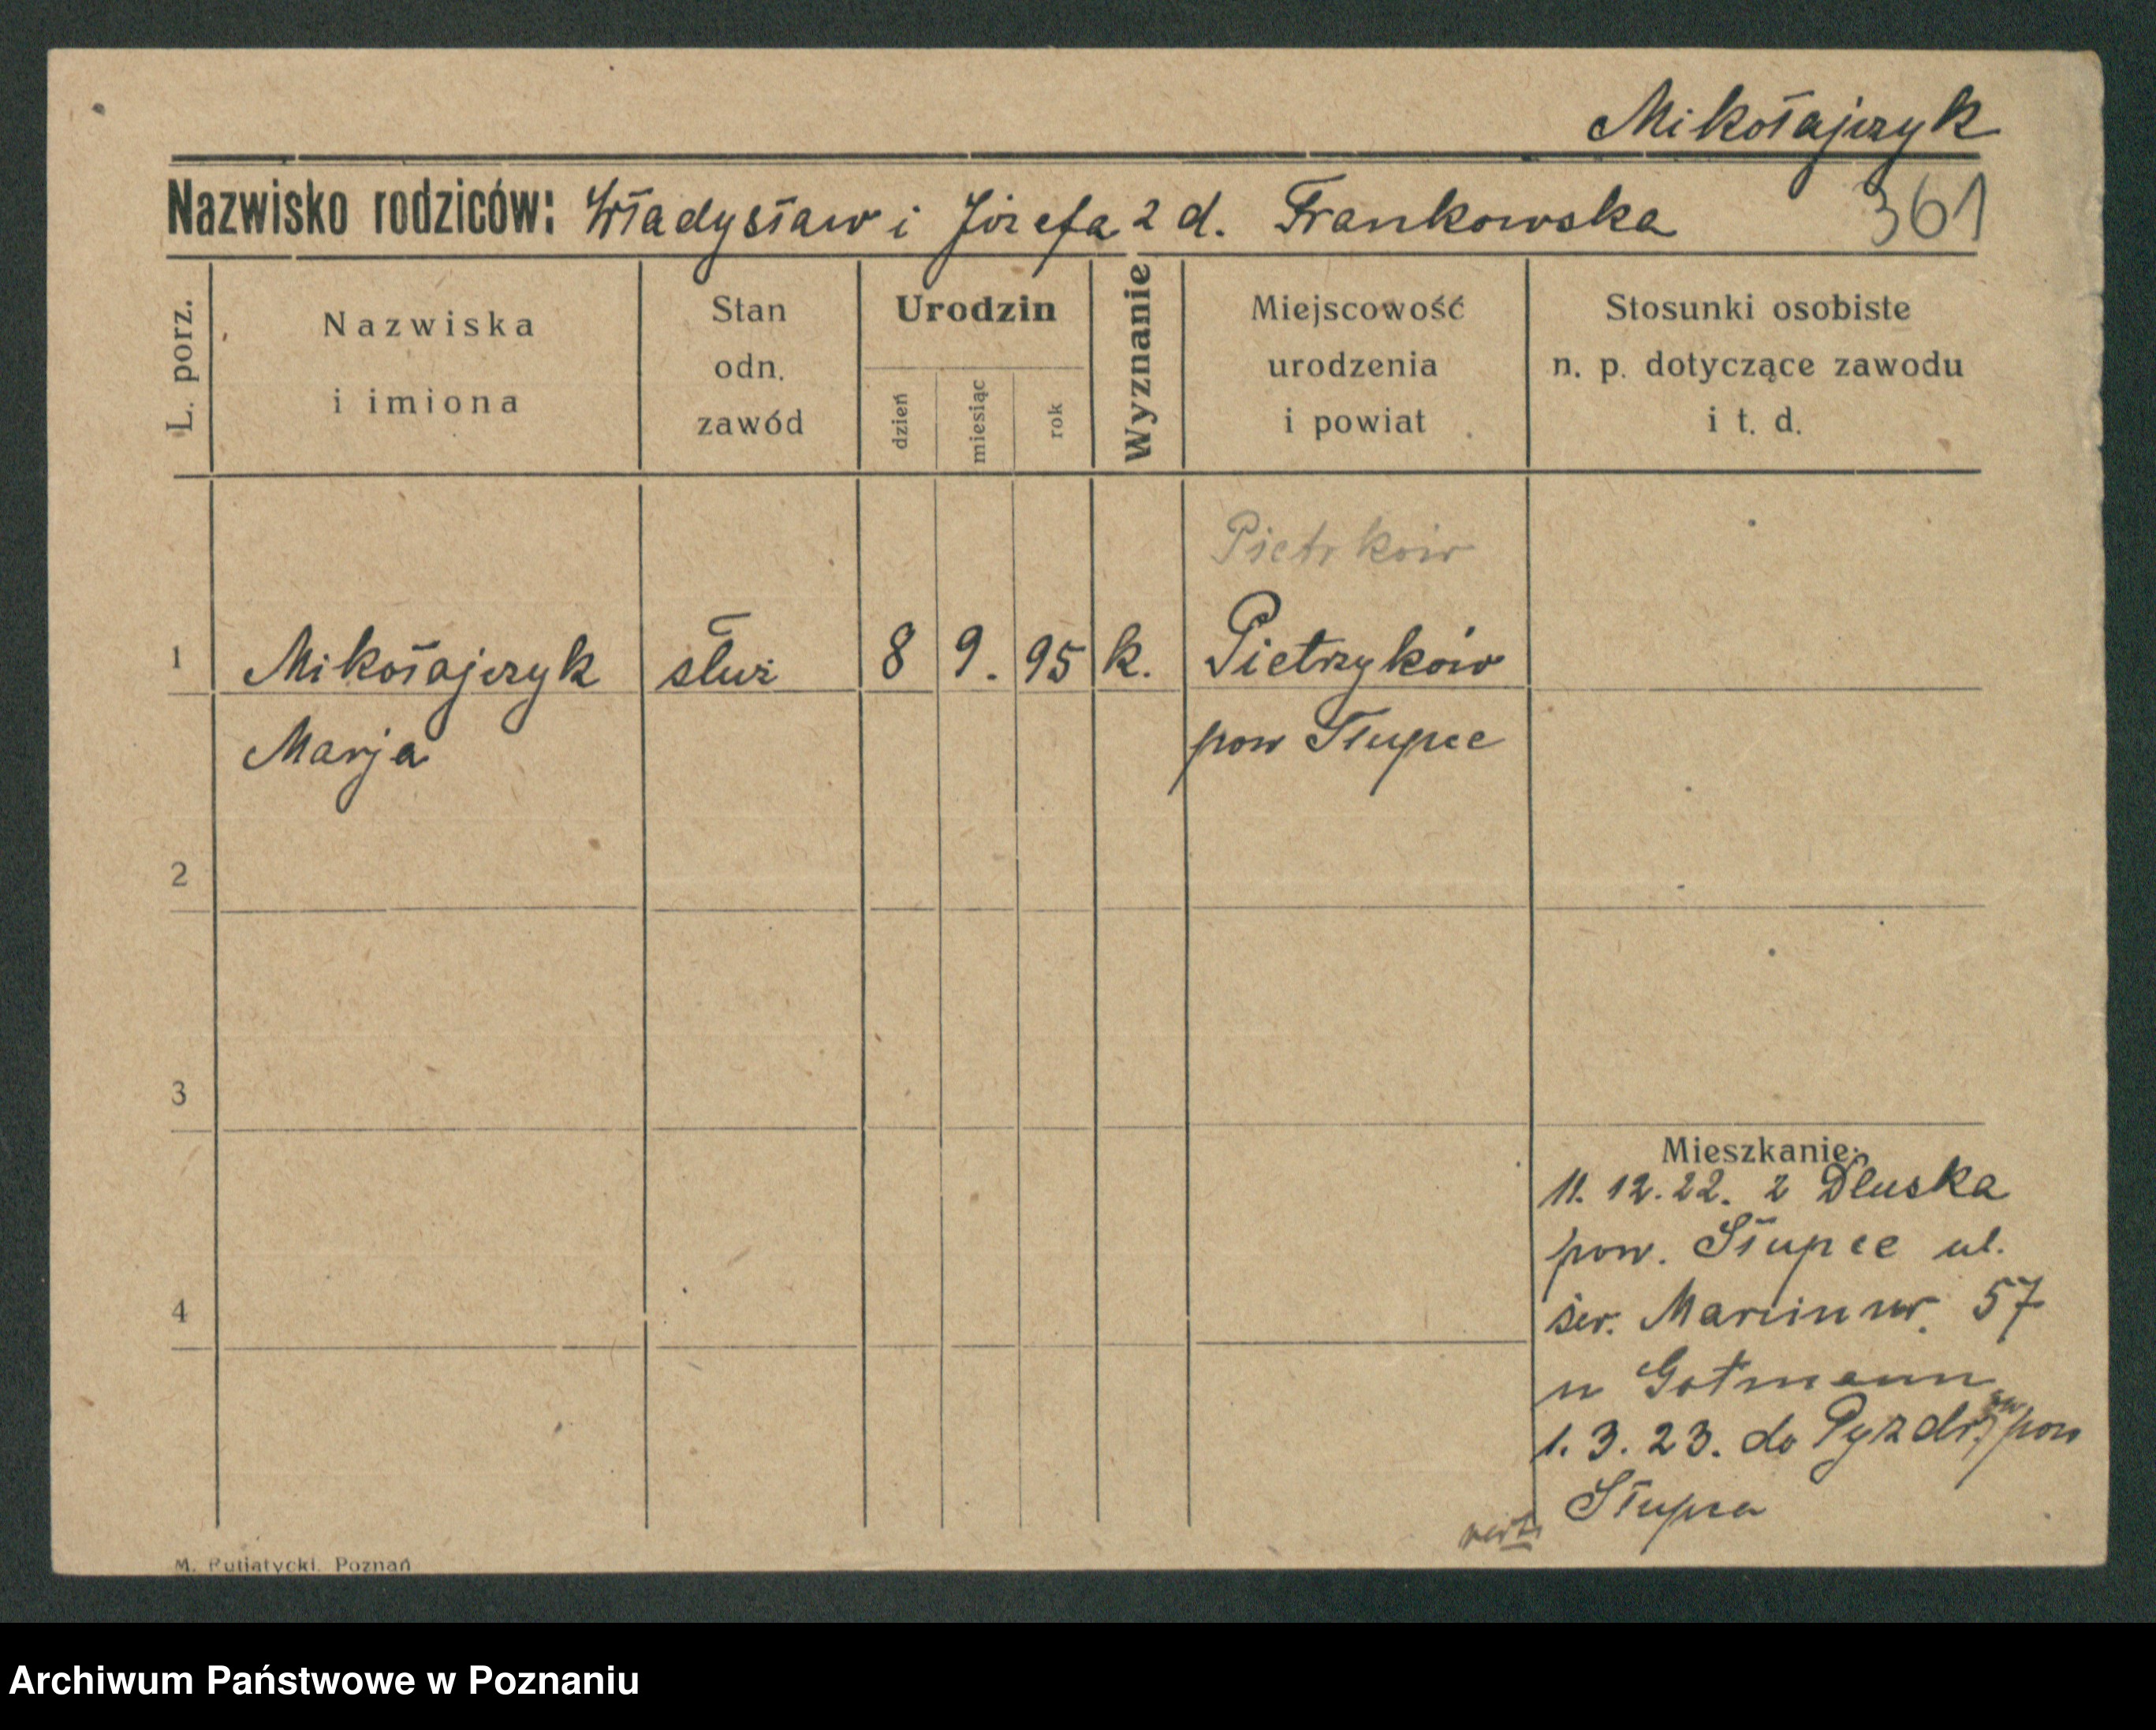 Mikołajczyk
Nazwisko rodziców: Władysław i Józefa z d. Frankowska 361
L. porz.
Nazwiska
i imiona
Stan
odn.
zawód
Urodzin
dzień
miesiąc
rok
Wyznanie
Miejscowość
urodzenia
i powiat
Stosunki osobiste
n. p. dotyczące zawodu
i t. d.
Pietrków
1 Mikołajczyk służ 8 9. 95 k. Pietrzyków
Marja pow Słupce
2
3
4
Mieszkanie:
11. 12. 22. z Dłuska
pow. Słupce ul.
św. Marcin nr. 57
u Gotmann
1. 3. 23. do Pyzdr pow
Słupca
M. Putiatycki. Poznań
Archiwum Państwowe w Poznaniu